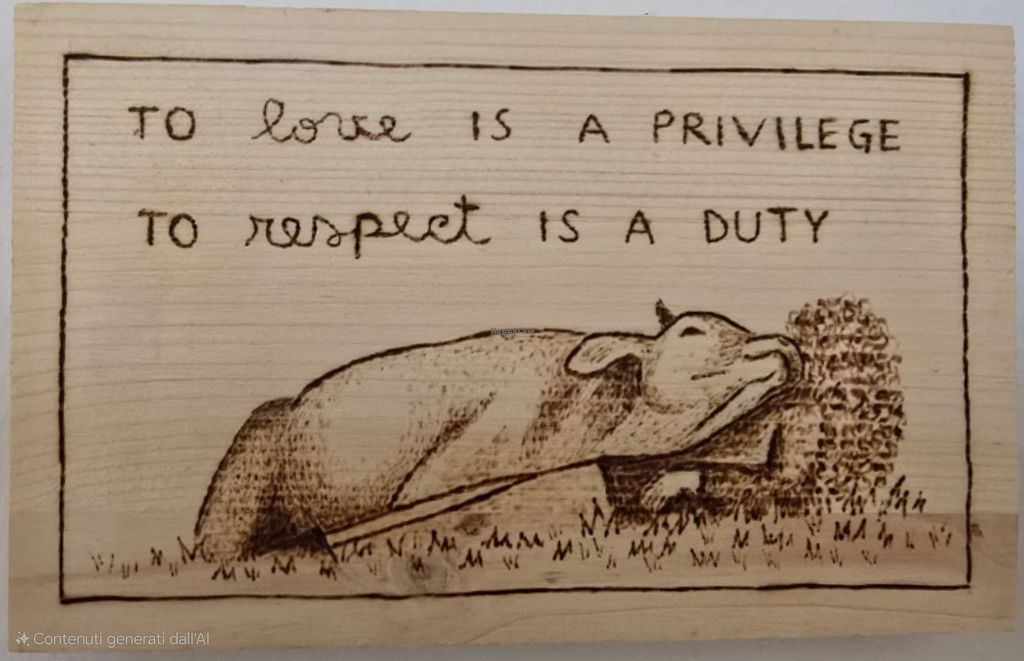 TO love IS A PRIVILEGE
TO respect IS A DUTY
HappyCow
Contenuti generati dall'AI